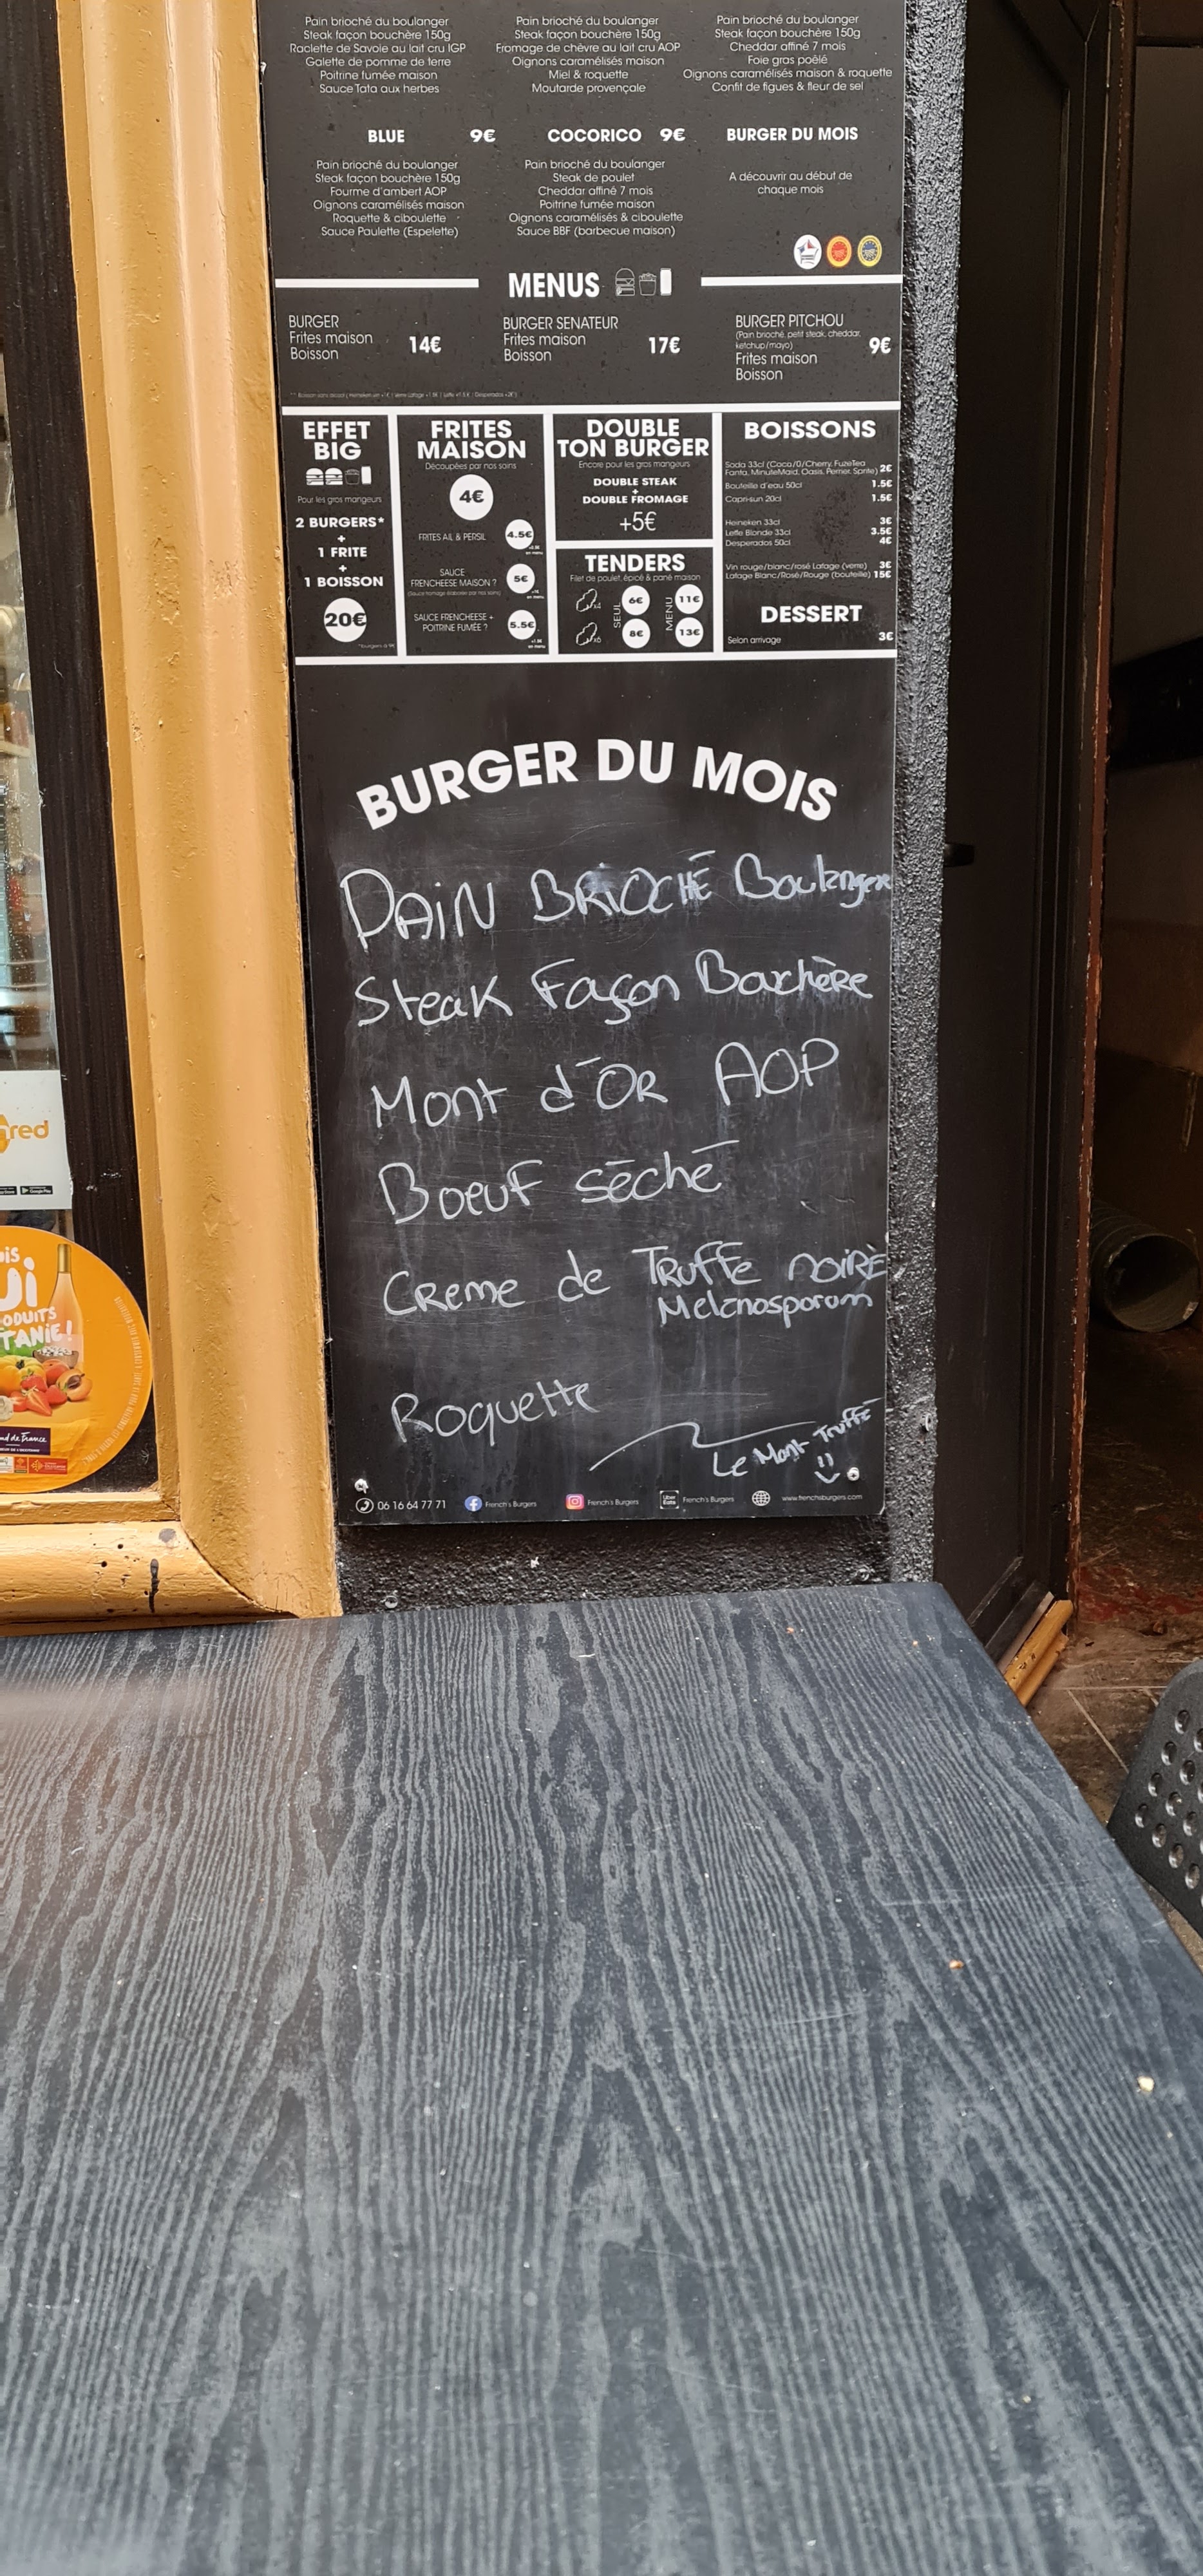 Pain brioché du boulanger
Steak façon bouchère 150g
Raclette de Savoie au lait cru IGP
Galette de pomme de terre
Poitrine fumée maison
Sauce Tata aux herbes
Pain brioché du boulanger
Steak façon bouchère 150g
Fromage de chèvre au lait cru AOP
Oignons caramélisés maison
Miel & roquette
Moutarde provençale
Pain brioché du boulanger
Steak façon bouchère 150g
Cheddar affiné 7 mois
Foie gras poêlé
Oignons caramélisés maison & roquette
Confit de figues & fleur de sel
BLUE 9€
Pain brioché du boulanger
Steak façon bouchère 150g
Fourme d'ambert AOP
Oignons caramélisés maison
Roquette & ciboulette
Sauce Paulette (Espelette)
COCORICO 9€
Pain brioché du boulanger
Steak de poulet
Cheddar affiné 7 mois
Poitrine fumée maison
Oignons caramélisés & ciboulette
Sauce BBF (barbecue maison)
BURGER DU MOIS
A découvrir au début de
chaque mois
MENUS
BURGER
Frites maison
Boisson
14€
BURGER SENATEUR
Frites maison
Boisson
17€
BURGER PITCHOU
(Pain brioché, petit steak, cheddar,
ketchup/mayo)
Frites maison
Boisson
9€
EFFET
BIG
Pour les gros mangeurs
2 BURGERS*
+
1 FRITE
+
1 BOISSON
20€
*burgers à 9€
FRITES
MAISON
Découpées par nos soins
4€
FRITES AIL & PERSIL 4.5€
en menu
SAUCE
FRENCHEESE MAISON ? 5€
(Sauce fromage élaborée par nos soins)
en menu
SAUCE FRENCHEESE +
POITRINE FUMÉE ? 5.5€
en menu
DOUBLE
TON BURGER
Encore pour les gros mangeurs
DOUBLE STEAK
+
DOUBLE FROMAGE
+5€
TENDERS
Filet de poulet, épicé & pané maison
x4 SEUL 6€ MENU 11€
x6 8€ 13€
BOISSONS
Soda 33cl (Coca/0/Cherry, FuzeTea
Fanta, MinuteMaid, Oasis, Perrier, Sprite) 2€
Bouteille d'eau 50cl 1.5€
Capri-sun 20cl 1.5€
Heineken 33cl 3€
Leffe Blonde 33cl 3.5€
Desperados 50cl 4€
Vin rouge/blanc/rosé Lafage (verre) 3€
Lafage Blanc/Rosé/Rouge (bouteille) 15€
DESSERT
Selon arrivage 3€
BURGER DU MOIS
PAIN BRIOCHÉ Boulangere
Steak Façon Bouchère
Mont d'OR AOP
Boeuf séché
Creme de Truffe noire
Melanosporum
Roquette
Le Mont Truffé
06 16 64 77 71
French's Burgers
French's Burgers
Uber
Eats
French's Burgers
www.frenchsburgers.com